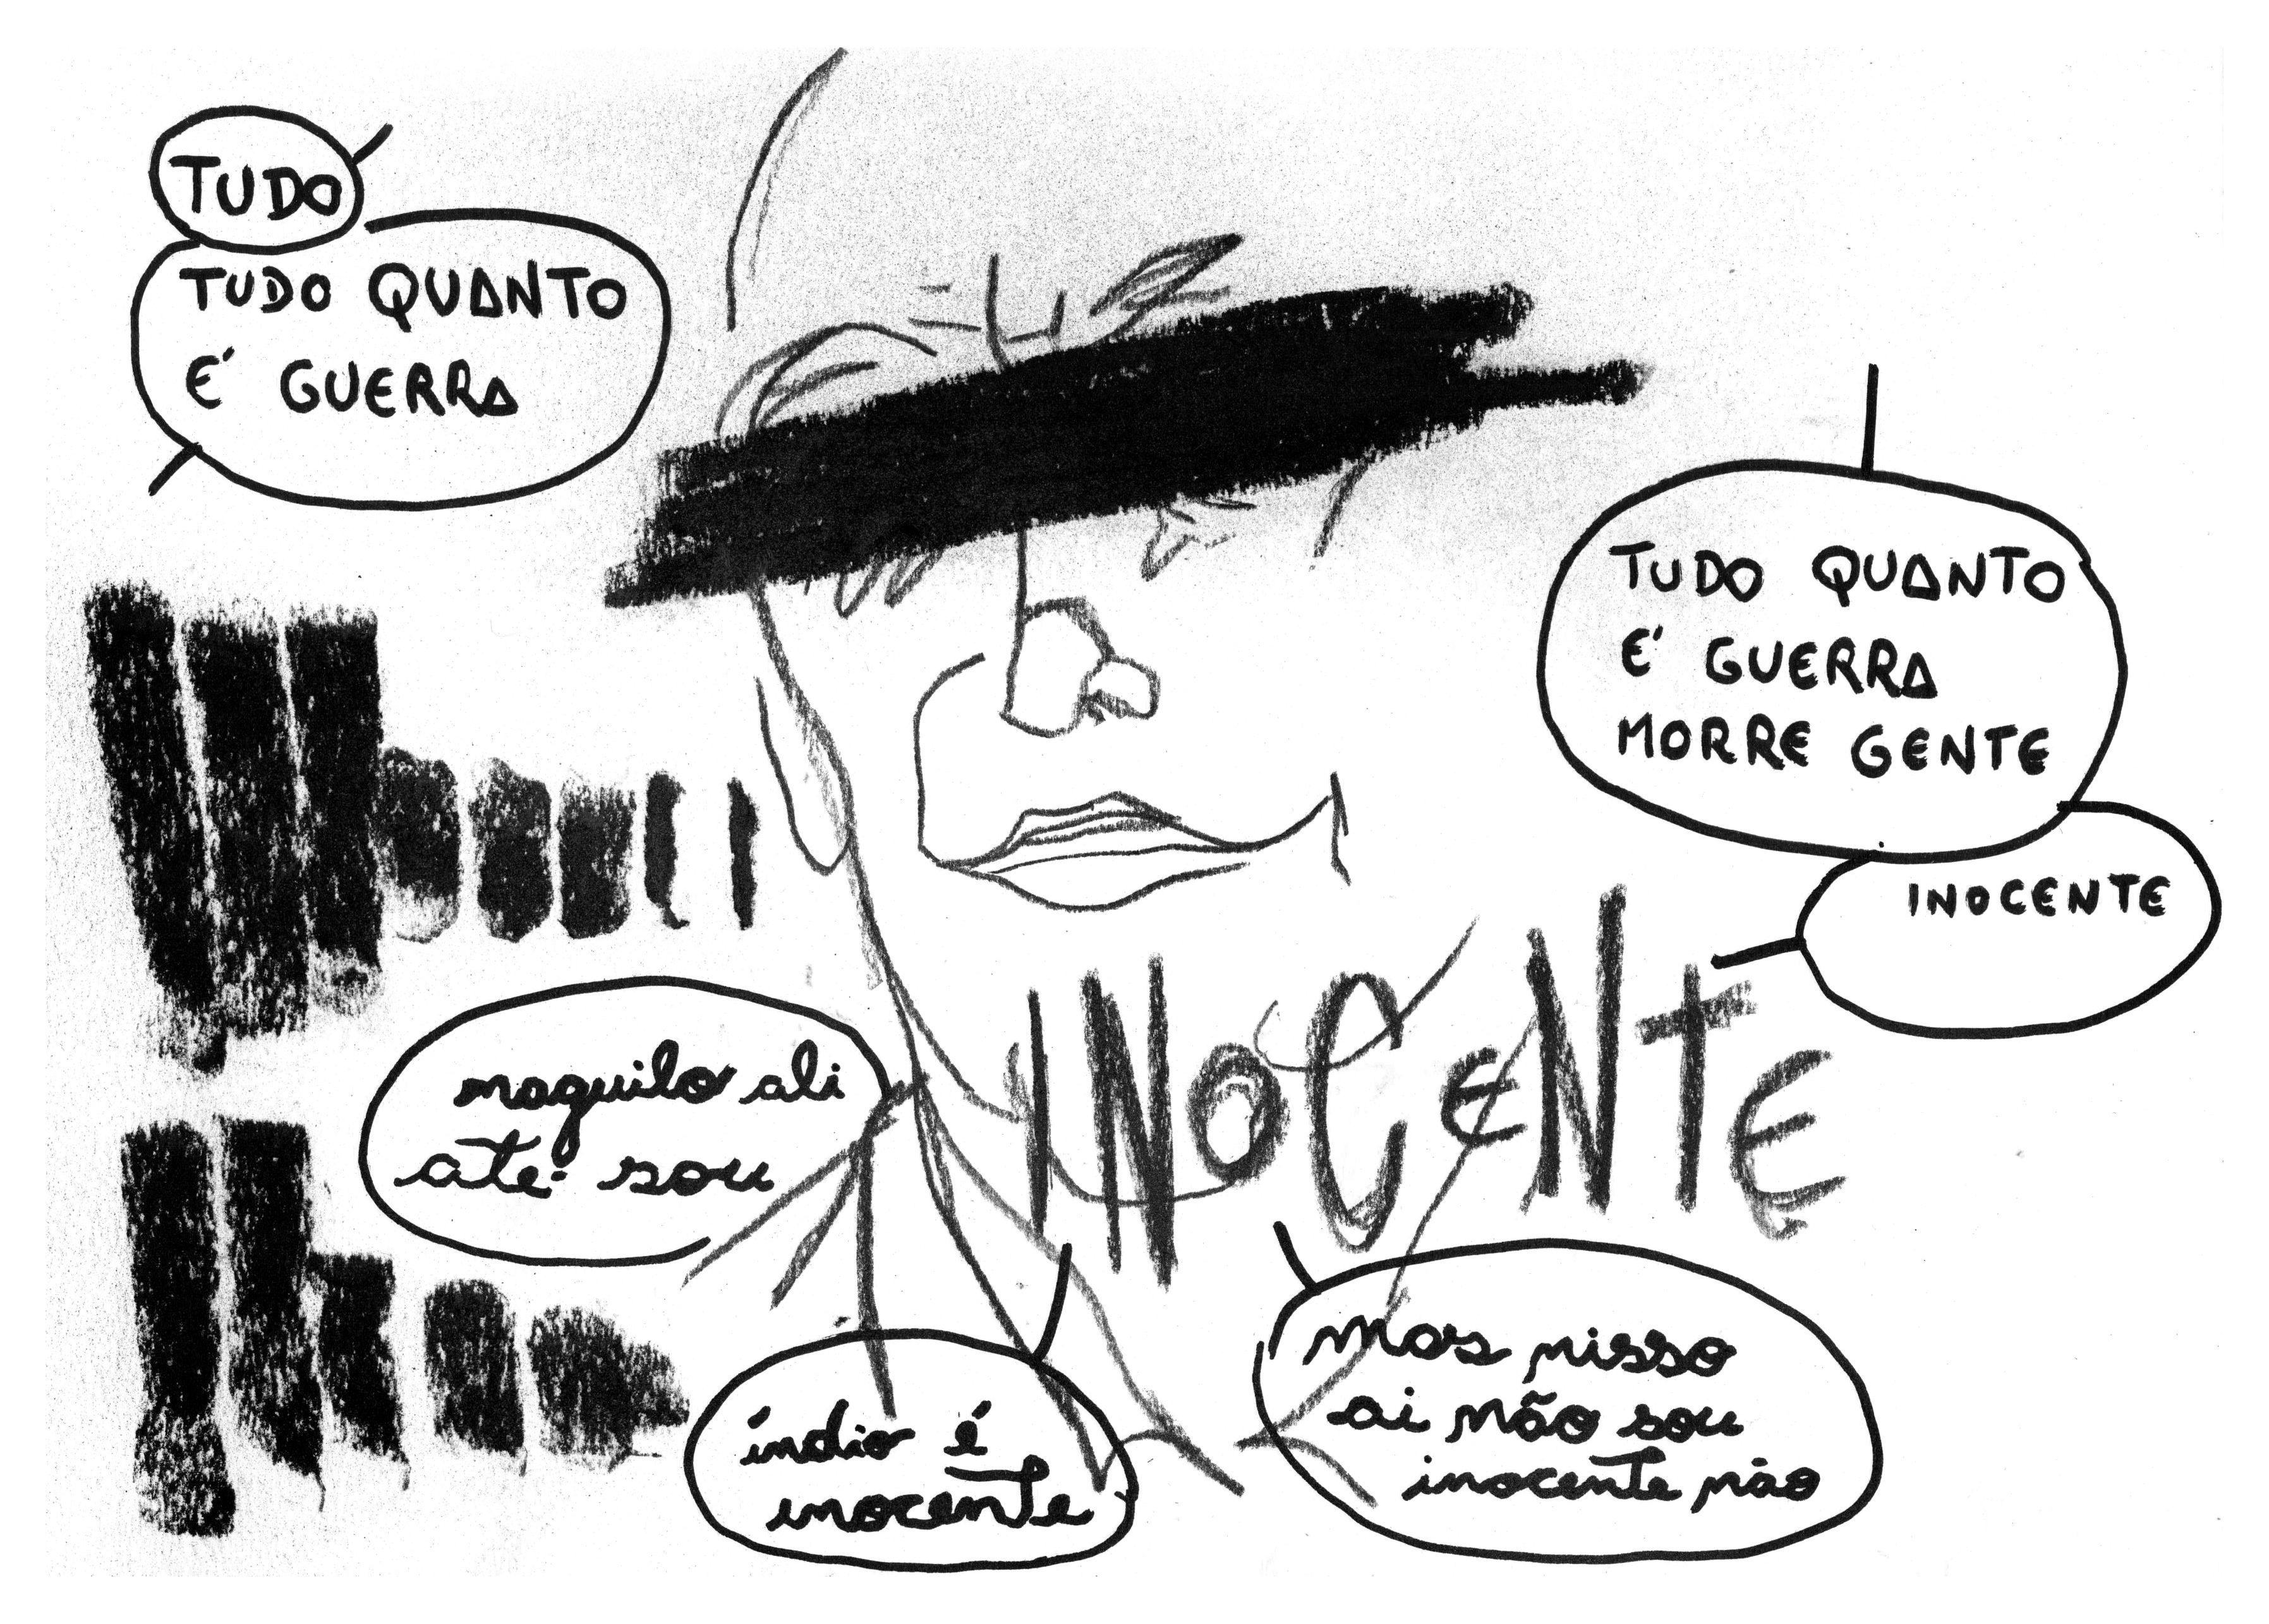 TUDO
TUDO QUANTO
É GUERRA
TUDO QUANTO
É GUERRA
MORRE GENTE
INOCENTE
INOCENTE
naquilo ali
até sou
índio é
inocente
mas nisso
ai não sou
inocente não